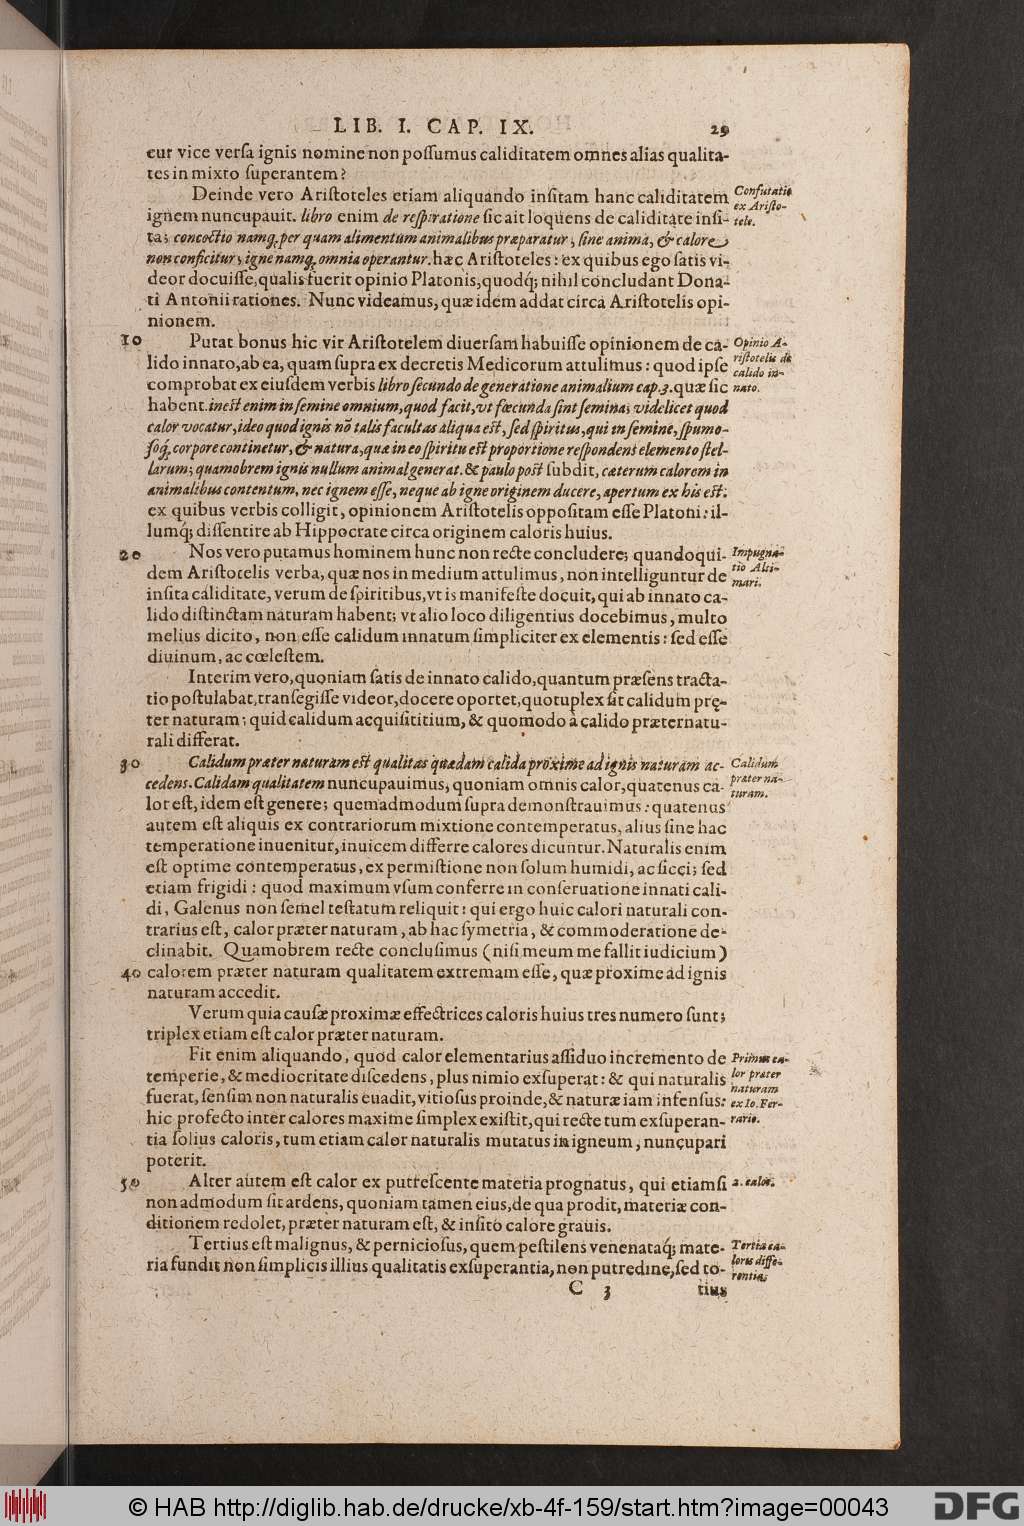 LIB. I. CAP. IX. 29
cur vice verſa ignis nomine non poſſumus caliditatem omnes alias qualita-
tes in mixto ſuperantem?
Deinde vero Ariſtoteles etiam aliquando inſitam hanc caliditatem
Confutatio
ex Ariſto-
tele.
ignem nuncupauit. libro enim de reſpiratione ſic ait loquens de caliditate inſi-
ta; concoctio namq́; per quam alimentum animalibus præparatur, ſine anima, & calore
non conficitur; igne namq́; omnia operantur. hæc Ariſtoteles: ex quibus ego ſatis vi-
deor docuiſſe, qualis fuerit opinio Platonis, quodq́; nihil concludant Dona-
ti Antonii rationes. Nunc videamus, quæ idem addat circa Ariſtotelis opi-
nionem.
10 Putat bonus hic vir Ariſtotelem diuerſam habuiſſe opinionem de ca-
Opinio A-
riſtotelis de
calido in-
nato.
lido innato, ab ea, quam ſupra ex decretis Medicorum attulimus: quod ipſe
comprobat ex eiuſdem verbis libro ſecundo de generatione animalium cap. 3. quæ ſic
habent. ineſt enim in ſemine omnium, quod facit, vt fœcunda ſint ſemina; videlicet quod
calor vocatur, ideo quod ignis nō talis facultas aliqua eſt, ſed ſpiritus, qui in ſemine, ſpumo-
ſoq́; corpore continetur, & natura, quæ in eo ſpiritu eſt proportione reſpondens elemento ſtel-
larum; quamobrem ignis nullum animal generat. & paulo poſt ſubdit, cæterum calorem in
animalibus contentum, nec ignem eſſe, neque ab igne originem ducere, apertum ex his eſt:
ex quibus verbis colligit, opinionem Ariſtotelis oppoſitam eſſe Platoni: il-
lumq́; diſſentire ab Hippocrate circa originem caloris huius.
20 Nos vero putamus hominem hunc non recte concludere; quandoqui-
Impugna-
tio Alti-
mari.
dem Ariſtotelis verba, quæ nos in medium attulimus, non intelliguntur de
inſita caliditate, verum de ſpiritibus, vt is manifeſte docuit, qui ab innato ca-
lido diſtinctam naturam habent; vt alio loco diligentius docebimus, multo
melius dicito, non eſſe calidum innatum ſimpliciter ex elementis: ſed eſſe
diuinum, ac cœleſtem.
Interim vero, quoniam ſatis de innato calido, quantum præſens tracta-
tio poſtulabat, tranſegiſſe videor, docere oportet, quotuplex ſit calidum prę-
ter naturam; quid calidum acquiſititium, & quomodo à calido præternatu-
rali differat.
30 Calidum præter naturam eſt qualitas quædam calida proxime ad ignis naturam ac-
Calidum
præter na-
turam.
cedens. Calidam qualitatem nuncupauimus, quoniam omnis calor, quatenus ca-
lor eſt, idem eſt genere; quemadmodum ſupra demonſtrauimus: quatenus
autem eſt aliquis ex contrariorum mixtione contemperatus, alius ſine hac
temperatione inuenitur, inuicem differre calores dicuntur. Naturalis enim
eſt optime contemperatus, ex permiſtione non ſolum humidi, ac ſicci; ſed
etiam frigidi: quod maximum vſum conferre in conſeruatione innati cali-
di, Galenus non ſemel teſtatum reliquit: qui ergo huic calori naturali con-
trarius eſt, calor præter naturam, ab hac ſymetria, & commoderatione de-
clinabit. Quamobrem recte concluſimus (niſi meum me fallit iudicium)
40 calorem præter naturam qualitatem extremam eſſe, quæ proxime ad ignis
naturam accedit.
Verum quia cauſæ proximæ effectrices caloris huius tres numero ſunt;
triplex etiam eſt calor præter naturam.
Fit enim aliquando, quod calor elementarius aſſiduo incremento de
Primus ca-
lor præter
naturam
ex Io. Fer-
rario.
temperie, & mediocritate diſcedens, plus nimio exſuperat: & qui naturalis
fuerat, ſenſim non naturalis euadit, vitioſus proinde, & naturæ iam infenſus:
hic profecto inter calores maxime ſimplex exiſtit, qui recte tum exſuperan-
tia ſolius caloris, tum etiam calor naturalis mutatus in igneum, nuncupari
poterit.
50 Alter autem eſt calor ex putreſcente materia prognatus, qui etiamſi
2. calor.
non admodum ſit ardens, quoniam tamen eius, de qua prodit, materiæ con-
ditionem redolet, præter naturam eſt, & inſito calore grauis.
Tertius eſt malignus, & pernicioſus, quem peſtilens venenataq́; mate-
Tertia ca-
loris diffe-
rentia.
ria fundit non ſimplicis illius qualitatis exſuperantia, non putredine, ſed to-
C 3 tius
© HAB http://diglib.hab.de/drucke/xb-4f-159/start.htm?image=00043
DFG